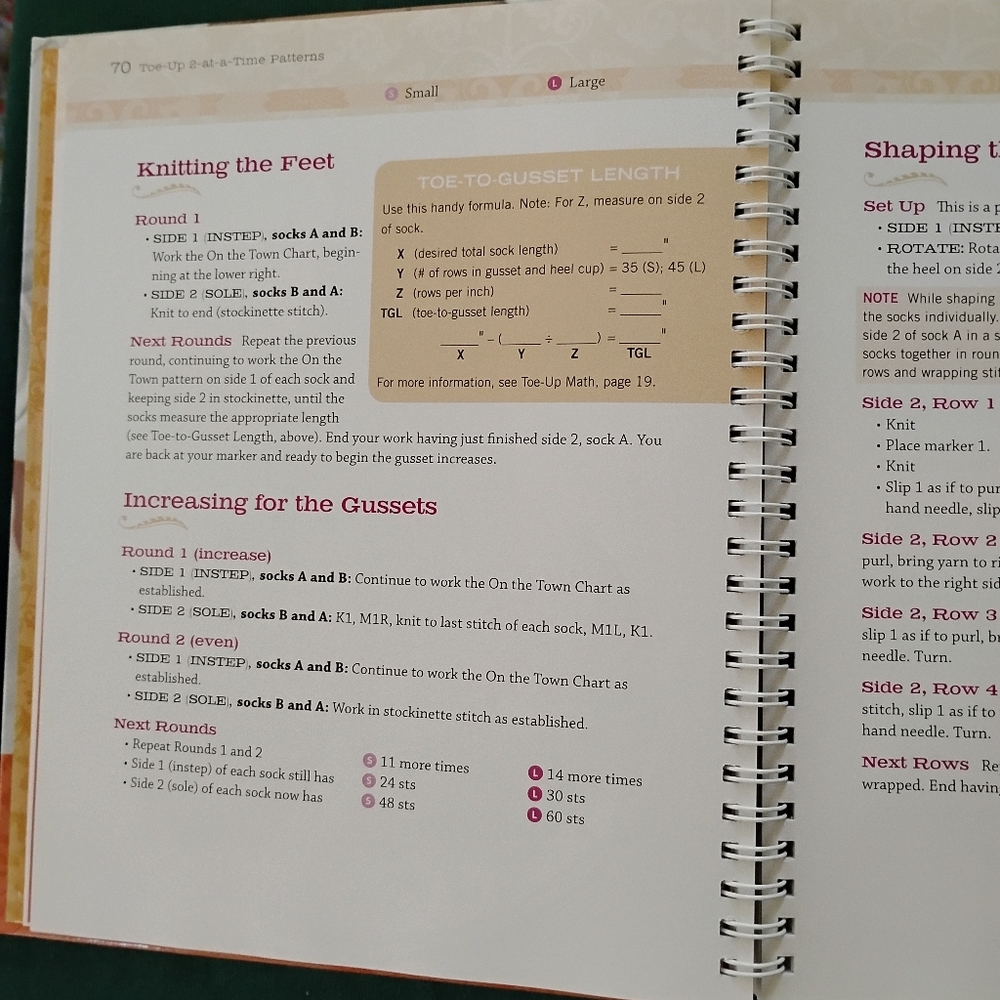 70 Toe-Up 2-at-a-Time Patterns
S Small L Large
Knitting the Feet
Round 1
• SIDE 1 (INSTEP), socks A and B:
Work the On the Town Chart, begin-
ning at the lower right.
• SIDE 2 (SOLE), socks B and A:
Knit to end (stockinette stitch).
Next Rounds Repeat the previous
round, continuing to work the On the
Town pattern on side 1 of each sock and
keeping side 2 in stockinette, until the
socks measure the appropriate length
(see Toe-to-Gusset Length, above). End your work having just finished side 2, sock A. You
are back at your marker and ready to begin the gusset increases.
TOE-TO-GUSSET LENGTH
Use this handy formula. Note: For Z, measure on side 2
of sock.
X (desired total sock length) = ______"
Y (# of rows in gusset and heel cup) = 35 (S); 45 (L)
Z (rows per inch) = ______
TGL (toe-to-gusset length) = ______"
______" – (______ ÷ ______) = ______"
X Y Z TGL
For more information, see Toe-Up Math, page 19.
Increasing for the Gussets
Round 1 (increase)
• SIDE 1 (INSTEP), socks A and B: Continue to work the On the Town Chart as
established.
• SIDE 2 (SOLE), socks B and A: K1, M1R, knit to last stitch of each sock, M1L, K1.
Round 2 (even)
• SIDE 1 (INSTEP), socks A and B: Continue to work the On the Town Chart as
established.
• SIDE 2 (SOLE), socks B and A: Work in stockinette stitch as established.
Next Rounds
• Repeat Rounds 1 and 2 S 11 more times L 14 more times
• Side 1 (instep) of each sock still has S 24 sts L 30 sts
• Side 2 (sole) of each sock now has S 48 sts L 60 sts
Shaping t
Set Up This is a p
• SIDE 1 (INSTE
• ROTATE: Rota
the heel on side 2
NOTE While shaping
the socks individually.
side 2 of sock A in a s
socks together in roun
rows and wrapping stit
Side 2, Row 1
• Knit
• Place marker 1.
• Knit
• Slip 1 as if to pur
hand needle, slip
Side 2, Row 2
purl, bring yarn to ri
work to the right sid
Side 2, Row 3
slip 1 as if to purl, br
needle. Turn.
Side 2, Row 4
stitch, slip 1 as if to
hand needle. Turn.
Next Rows Re
wrapped. End having